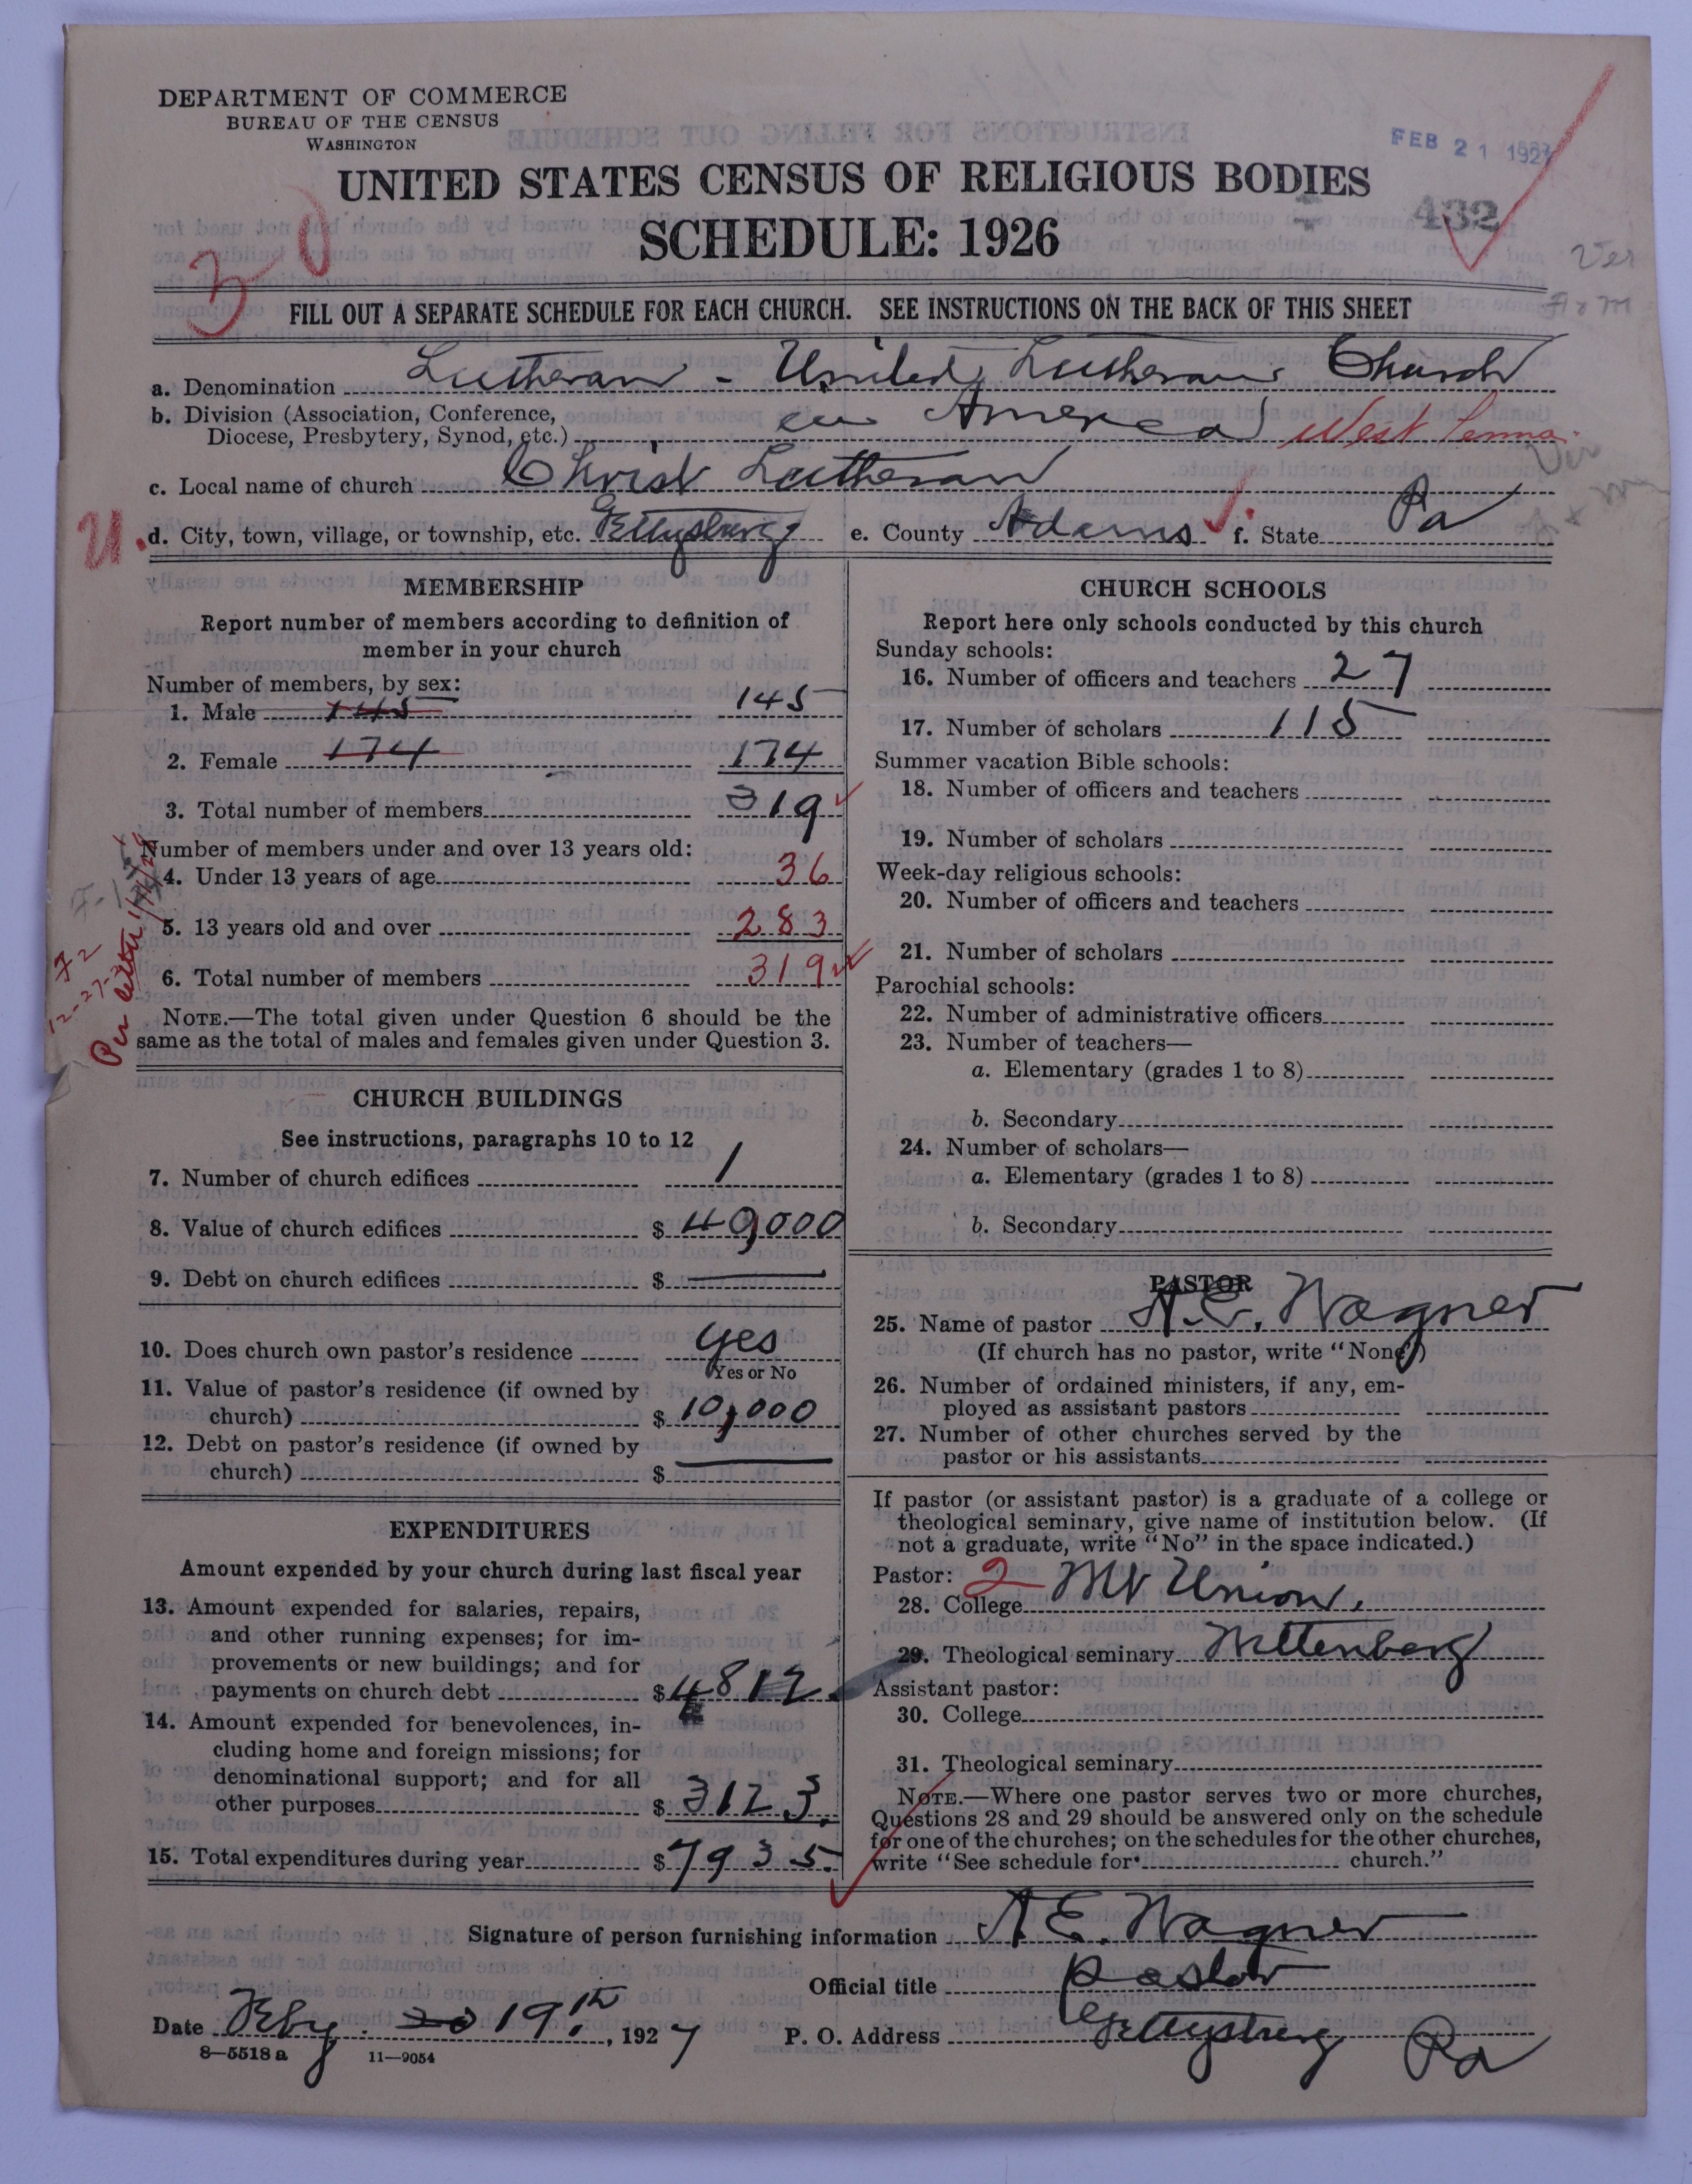 DEPARTMENT OF COMMERCE
BUREAU OF THE CENSUS
WASHINGTON
FEB 21 1927
UNITED STATES CENSUS OF RELIGIOUS BODIES
SCHEDULE: 1926
432
30
Ver
FILL OUT A SEPARATE SCHEDULE FOR EACH CHURCH. SEE INSTRUCTIONS ON THE BACK OF THIS SHEET
a. Denomination Lutheran - United Lutheran Church
b. Division (Association, Conference, Diocese, Presbytery, Synod, etc.) in America West Penna.
c. Local name of church Christ Lutheran
U. d. City, town, village, or township, etc. Gettysburg e. County Adams f. State Pa
MEMBERSHIP
Report number of members according to definition of
member in your church
Number of members, by sex:
1. Male 145 145
2. Female 174 174
3. Total number of members 319
Number of members under and over 13 years old:
4. Under 13 years of age 36
5. 13 years old and over 283
6. Total number of members 319
Per letter
NOTE.—The total given under Question 6 should be the
same as the total of males and females given under Question 3.
CHURCH BUILDINGS
See instructions, paragraphs 10 to 12
7. Number of church edifices 1
8. Value of church edifices $ 40,000
9. Debt on church edifices $ —
10. Does church own pastor's residence yes
Yes or No
11. Value of pastor's residence (if owned by
church) $ 10,000
12. Debt on pastor's residence (if owned by
church) $ —
EXPENDITURES
Amount expended by your church during last fiscal year
13. Amount expended for salaries, repairs,
and other running expenses; for im-
provements or new buildings; and for
payments on church debt $ 4812.
14. Amount expended for benevolences, in-
cluding home and foreign missions; for
denominational support; and for all
other purposes $ 3123.
15. Total expenditures during year $ 7935.
CHURCH SCHOOLS
Report here only schools conducted by this church
Sunday schools:
16. Number of officers and teachers 27
17. Number of scholars 115
Summer vacation Bible schools:
18. Number of officers and teachers
19. Number of scholars
Week-day religious schools:
20. Number of officers and teachers
21. Number of scholars
Parochial schools:
22. Number of administrative officers
23. Number of teachers—
a. Elementary (grades 1 to 8)
b. Secondary
24. Number of scholars—
a. Elementary (grades 1 to 8)
b. Secondary
PASTOR
25. Name of pastor A. E. Wagner
(If church has no pastor, write "None")
26. Number of ordained ministers, if any, em-
ployed as assistant pastors
27. Number of other churches served by the
pastor or his assistants
If pastor (or assistant pastor) is a graduate of a college or
theological seminary, give name of institution below. (If
not a graduate, write "No" in the space indicated.)
Pastor: 2
28. College Mt Union.
29. Theological seminary Wittenberg
Assistant pastor:
30. College
31. Theological seminary
NOTE.—Where one pastor serves two or more churches,
Questions 28 and 29 should be answered only on the schedule
for one of the churches; on the schedules for the other churches,
write "See schedule for church."
Signature of person furnishing information A. E. Wagner
Official title Pastor
Date Feby. 20 19th, 1927 P. O. Address Gettysburg Pa
8—5518 a 11—9054